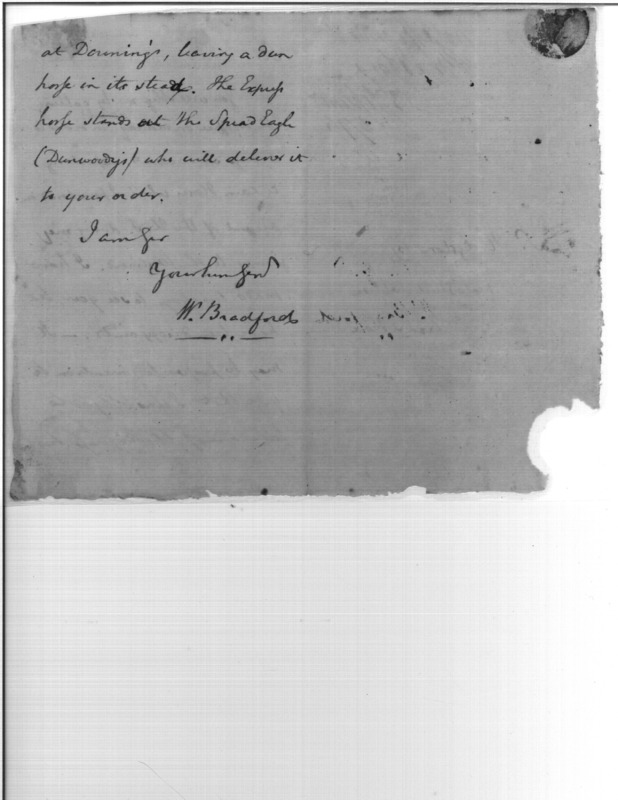 at Downing's, leaving a dun
horse in its stead. The Express
horse stands at the Spread Eagle
(Dunwoody's) who will deliver it
to your order.
I am &c
Your hum Serv
W. Bradford